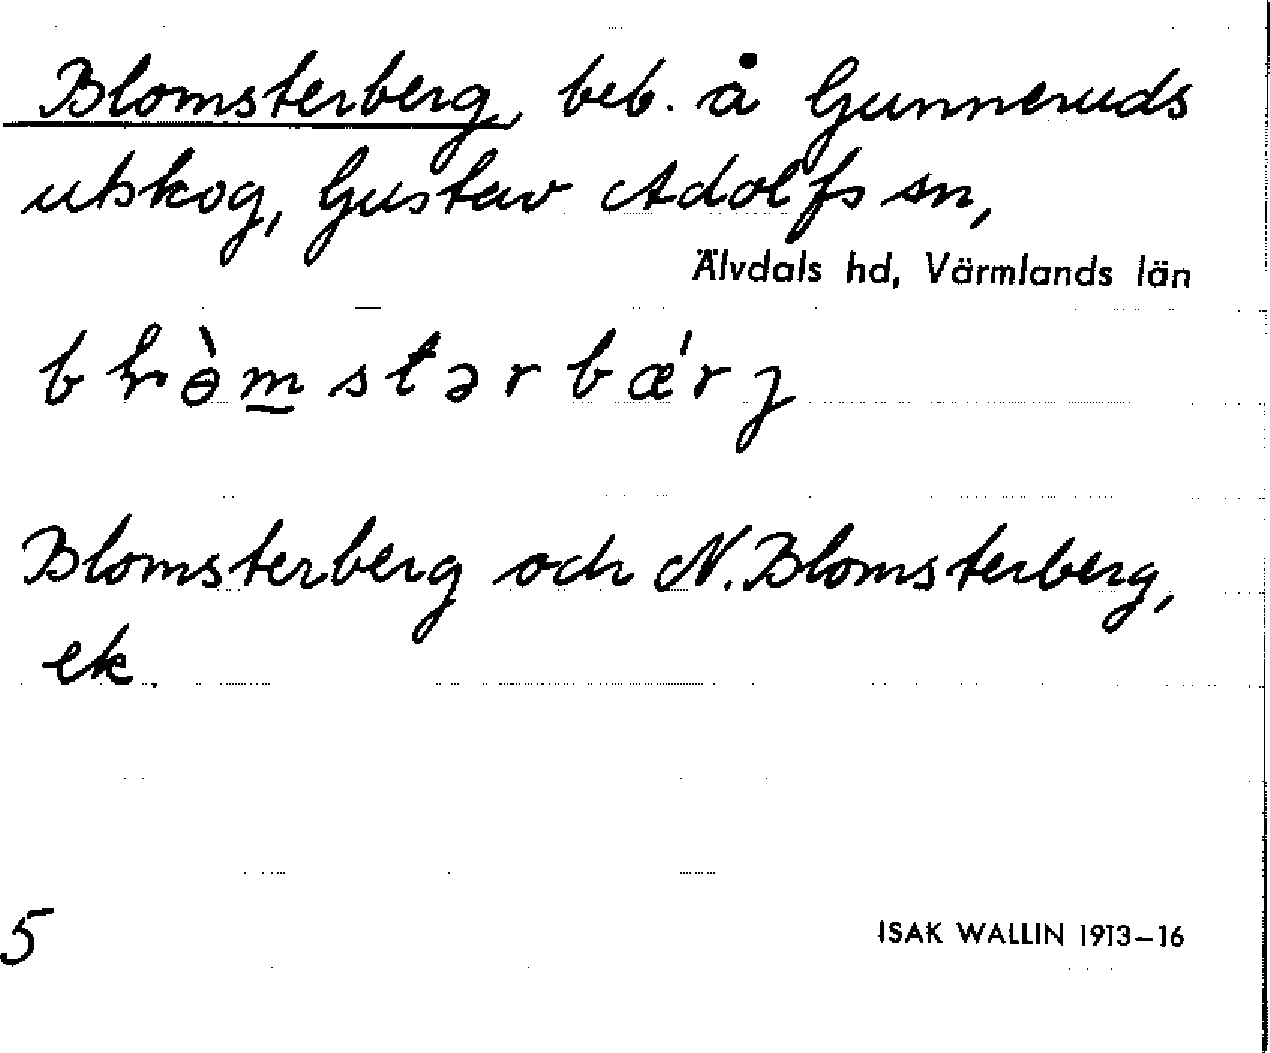 Blomsterberg, beb. å Gunneruds
utskog, Gustav Adolfs sn,
Älvdals hd, Värmlands län
Blomsterberg och N. Blomsterberg,
ek.
5
ISAK WALLIN 1913–16